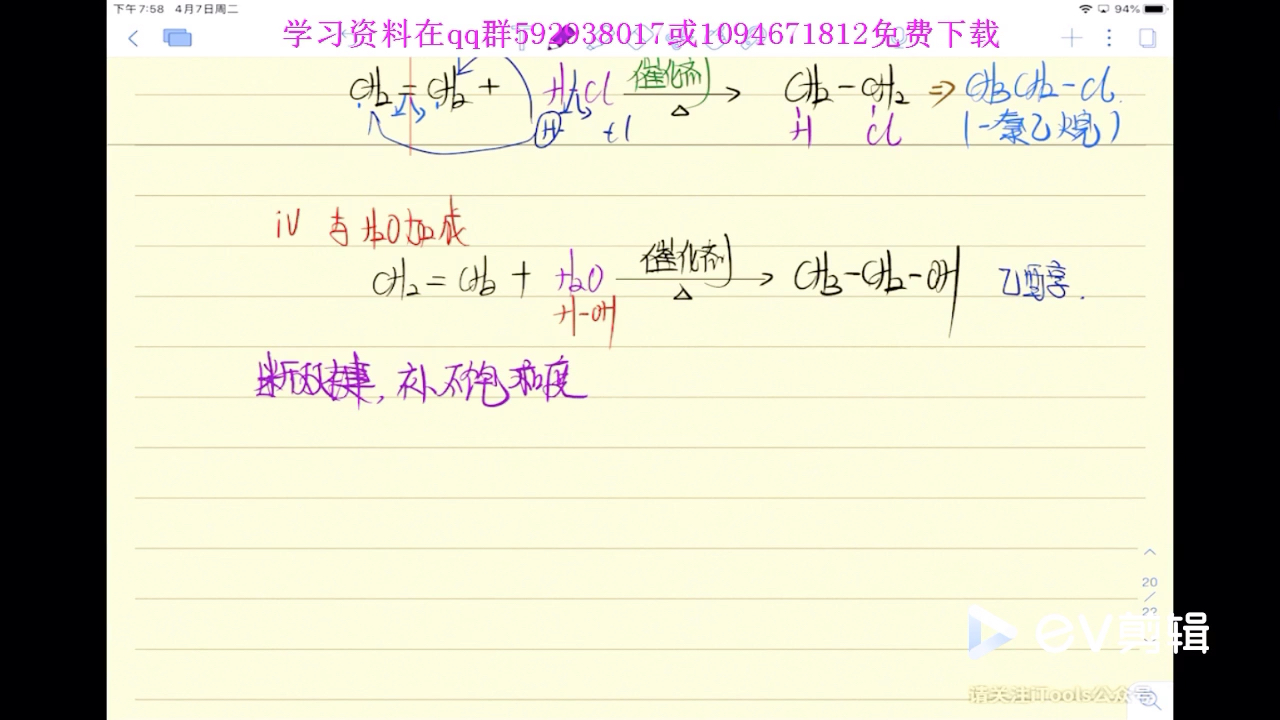 下午7:58 4月7日周二 94%
学习资料在qq群592938017或1094671812免费下载
CH2=CH2 + HCl 催化剂 △ → CH2-CH2 ⇒ CH3CH2-Cl
H Cl H Cl (一氯乙烷)
iV 与H2O加成
CH2=CH2 + H2O 催化剂 △ → CH3-CH2-OH 乙醇.
H-OH
断双键, 补不饱和度
20
/
22
eV剪辑
请关注iTools公众号